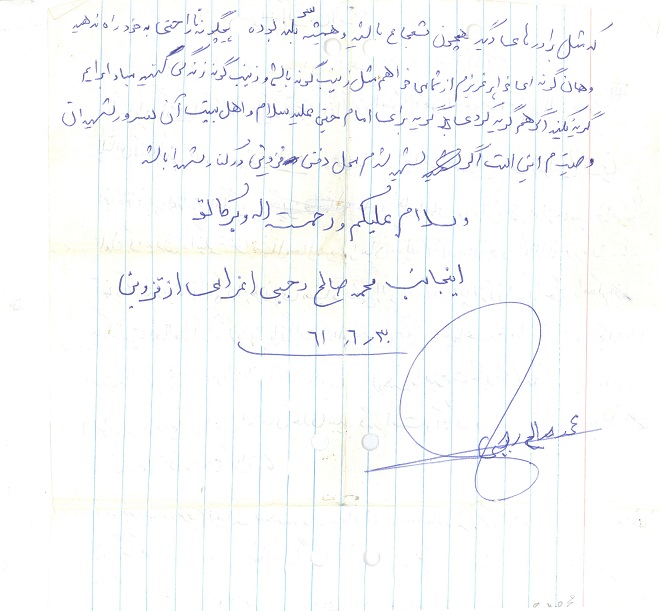 که مثل برادرهای دگیر همچون شجاع باشید و همیشه سر بلند بوده هیچگونه ناراحتی به خود راه ندهید
و همان گونه ای خواهر عزیزم از شما می خواهم مثل زینب گونه باشی و زینب گونه زندگی کنید مبادا برایم
گریه بکنید اگر هم گریه کردی گریه برای امام حسین علیه سلام و اهل بیت آن سرور شهیدان
وصیتم این است اگر شهید شدم محل دفن قزوین در کنار شهدا باشد
وسلام علیکم و رحمت اله و برکاتو
اینجانب محمد صالح رجبی اعزامی از قزوین
۶۱ ر ۶ ر ۳۰
محمد صالح رجبی